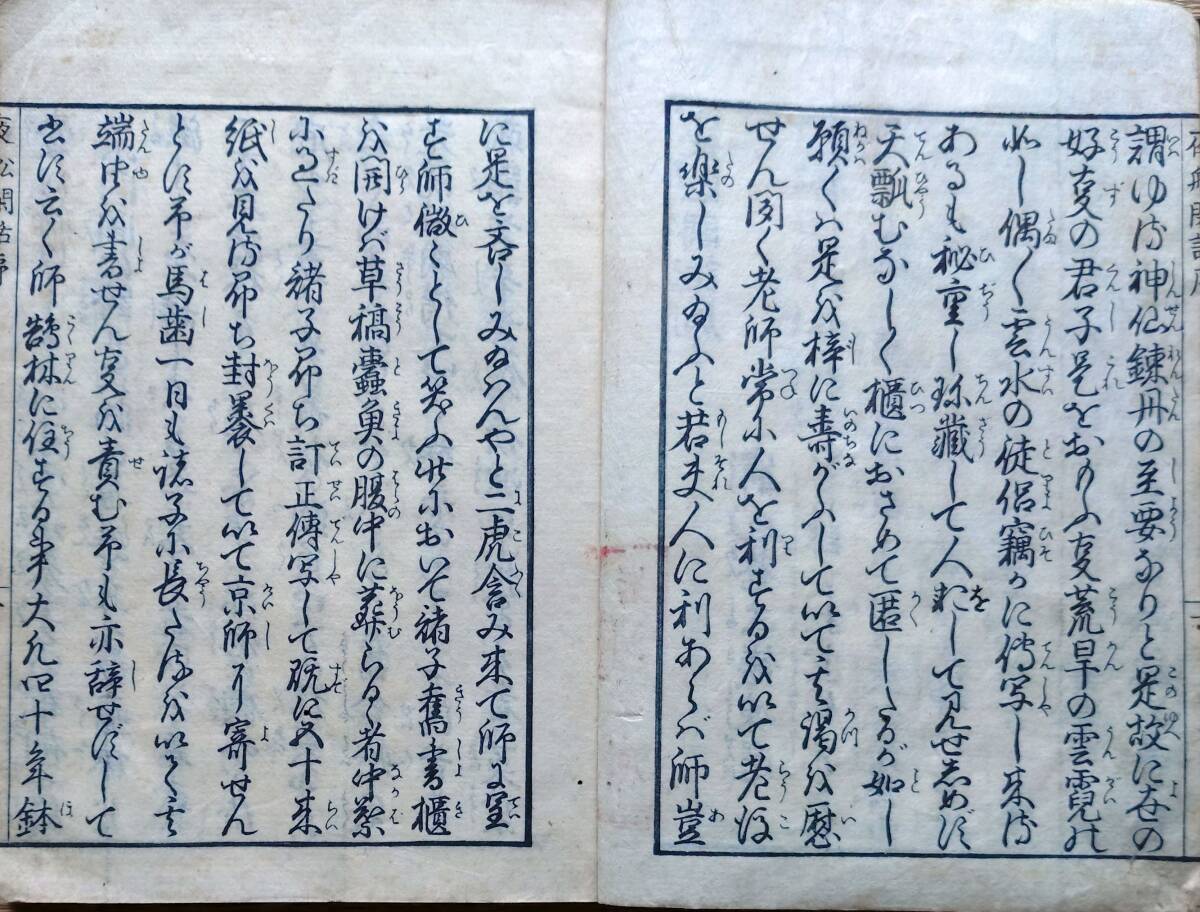 夜船閑話序
謂ゆる神仙錬丹の至要なりと是故に世の
好事の君子是をおもふ事荒旱の雲霓の
如し偶〱雲水の徒侶竊かに傳写し来る
あるも秘重し珍藏して人をして見せしめず
天瓢むなしく櫃におさめて匿したるが如し
願くは是を梓に壽がふして以て其渇を慰
せん聞く老師常に人を利するを以て老後
を樂しみ玉ふと若夫人に利あらば師豈
に是を吝しみ玉はんやと二虎含み来て師に呈
す師微〱として笑ふ此におひて諸子舊書櫃
を開けば草稿蠹魚の腹中に葬らるゝ者中葉
に過たり諸子即ち訂正傳写して既に五十来
紙を見る即ち封裹して以て京師に寄せん
とす予が馬齒一日も諸子に長たるを以て其
端由を書せん事を責む予も亦辞せずして
書す云く師鵠林に住する事大凡四十年鉢
夜船閑話序